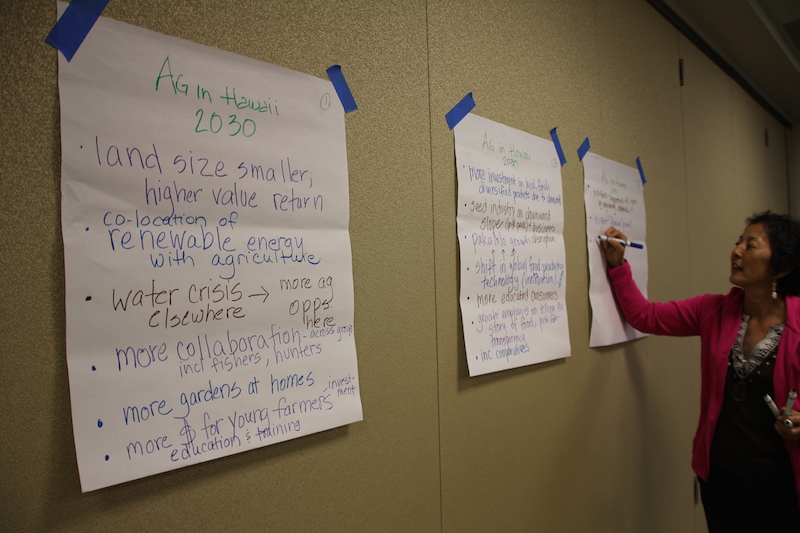 AG in Hawaii
2030
①
• land size smaller,
higher value return
• co-location of
renewable energy
with agriculture
• water crisis → more ag
elsewhere opps.
here
• more collaboration - across groups
incl fishers, hunters
• more gardens at homes
• more $ for young farmers - invest-
ment
education & training
AG in Hawaii
2030
• more investment in local, fresh
diversified products due to demand
• seed industry on downward
slope
• shift in global food production
technology (innovation)
• more educated consumers
• greater emphasis on telling the
story of food,
transparency
• inc cooperatives
AG in Hawaii